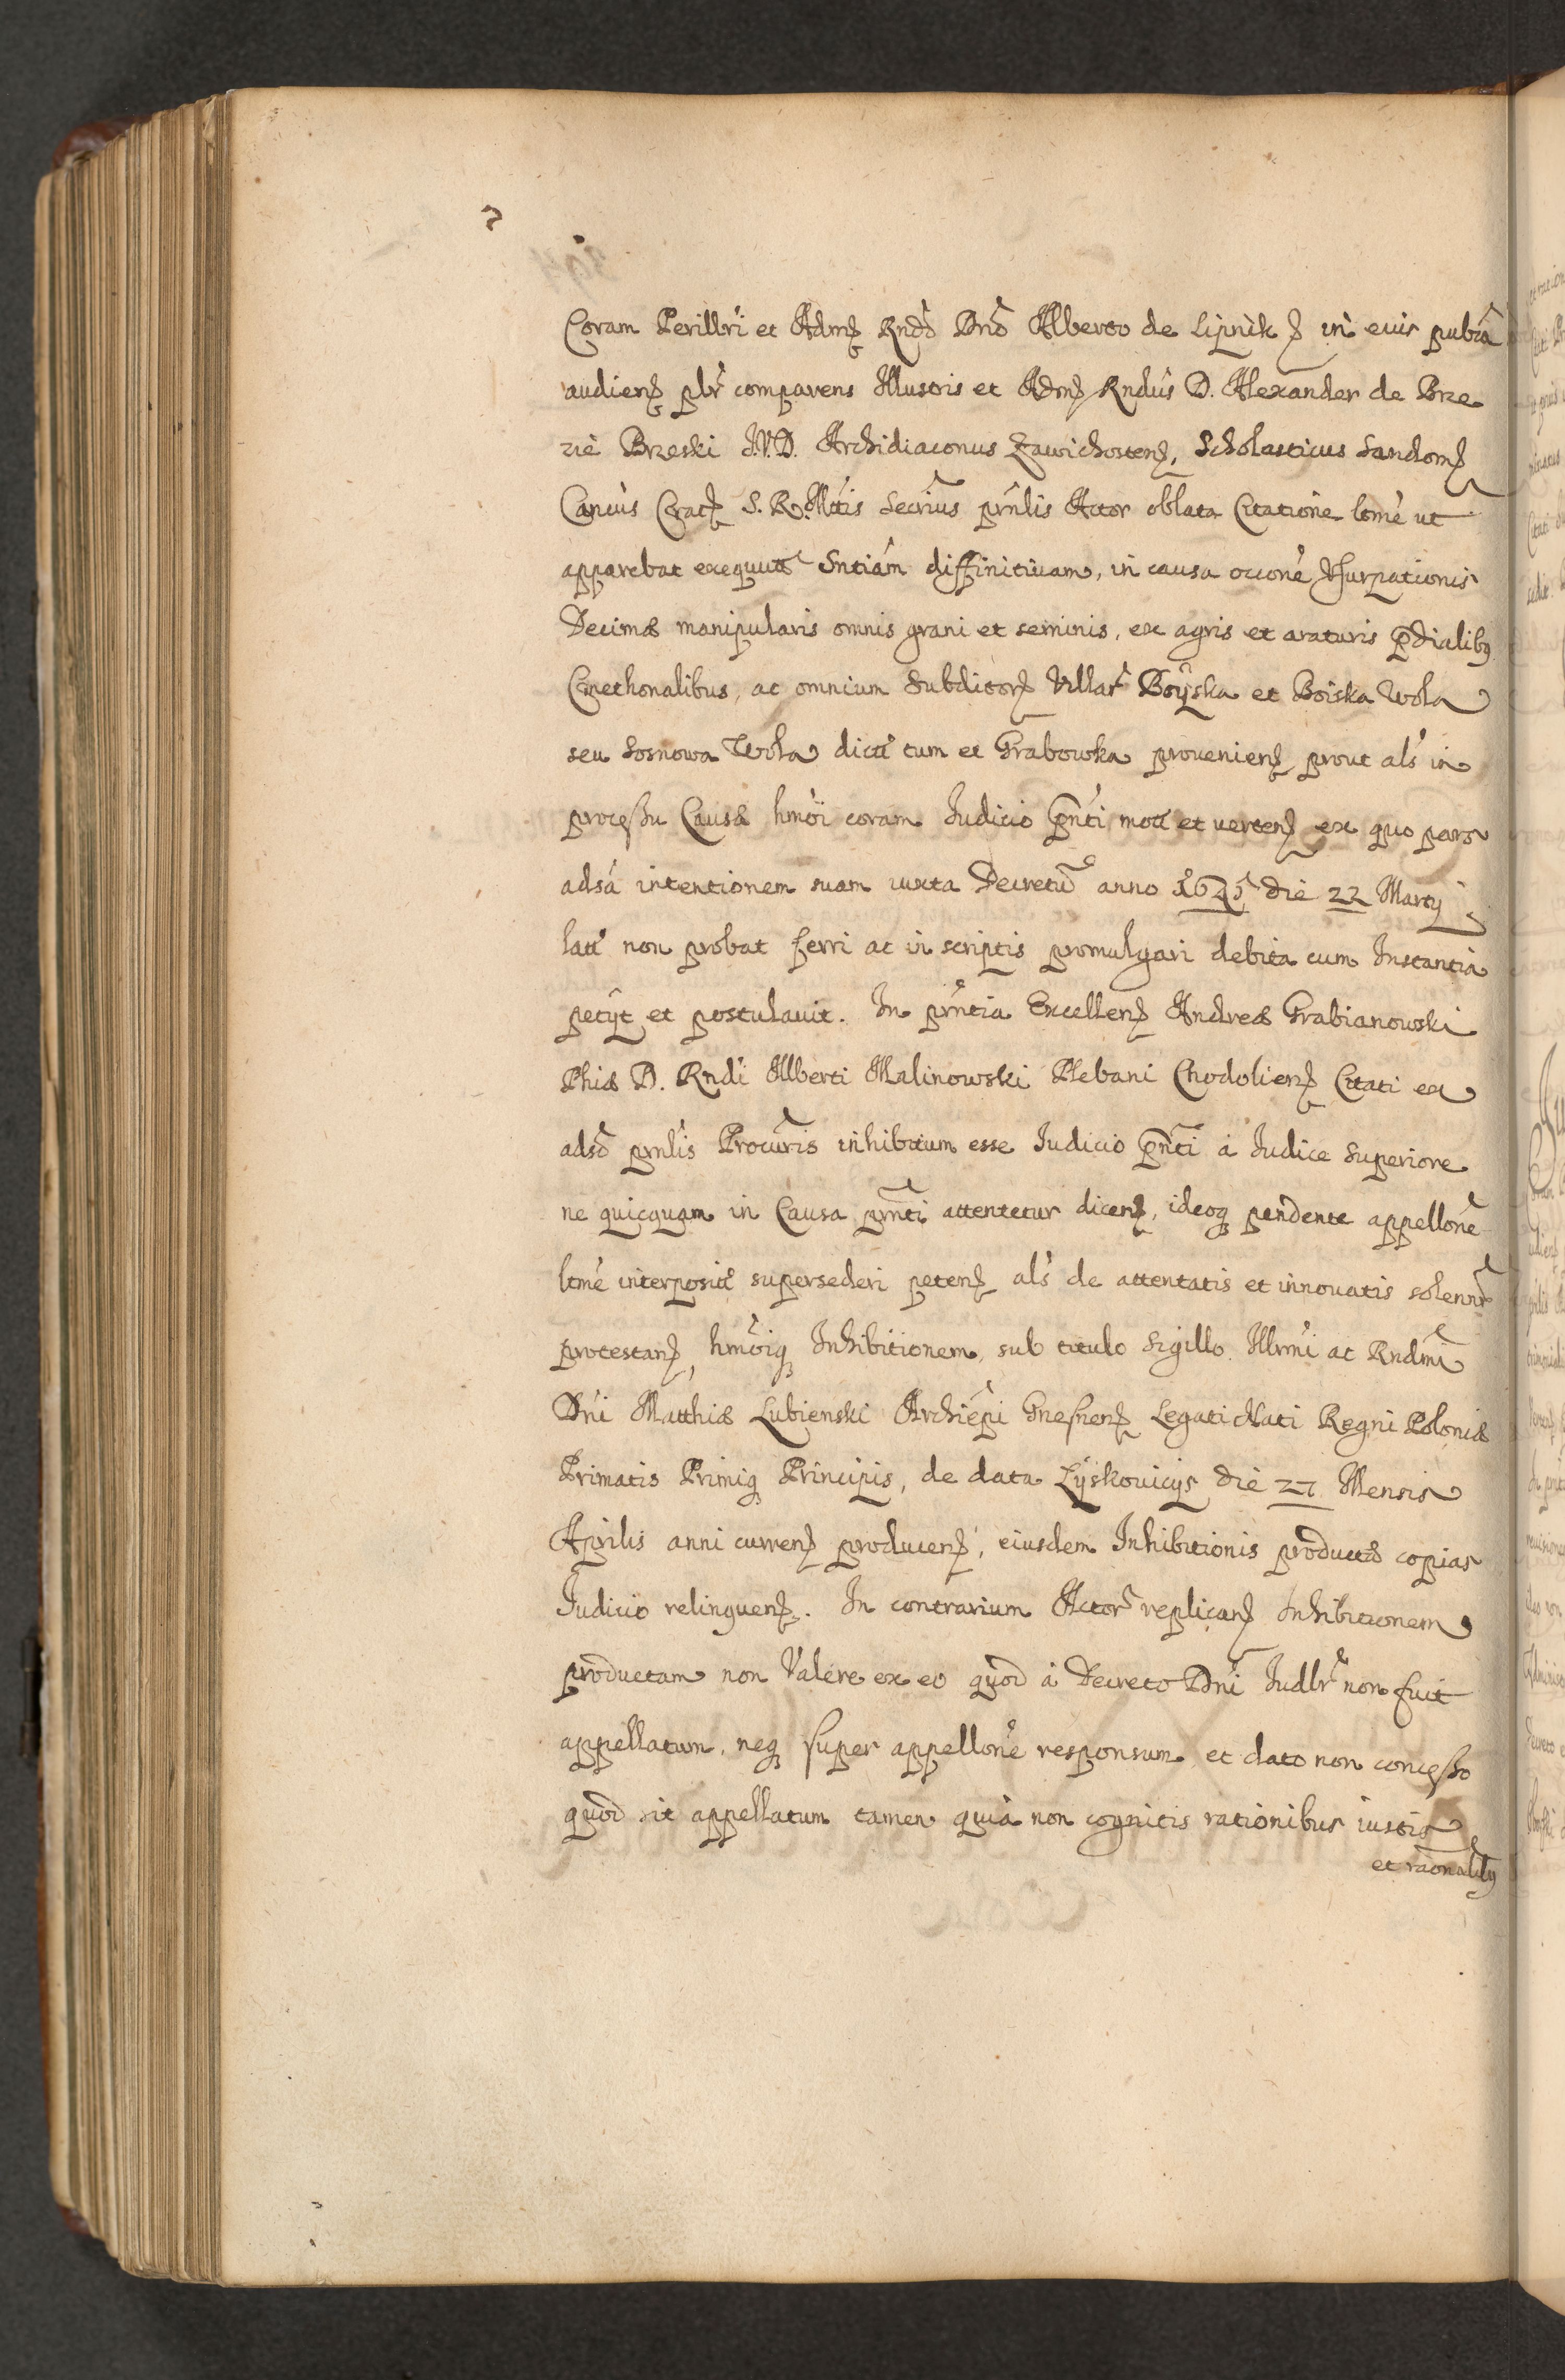 Coram Perillri et Admȝ Rndo Dno Alberto de Lipnik ȝ in eius publca
audienȝ plr comparens Illustris et Admȝ Rndus D. Alexander de Brze
zie Brzeski J.V.D. Archidiaconus Zawichostenȝ, Scholasticus Sandomȝ
Cancus Cracȝ S. R. Mtis Secrius prnlis Actor oblata Citatione ltme ut
apparebat exequuta Sntiam diffinitiuam, in causa occone Vsurpationis
Decimæ manipularis omnis grani et seminis, ex agris et araturis prdialibq
Cmethonalibus, ac omnium Subditorȝ Villar Boyska et Boiska Wola
seu Sosnowa Wola dict tum et Grabowka prouenienȝ prout als in
processu Causæ hmoi coram Iudicio pnti mota et vertenȝ ex quo pars
adsa intentionem suam iuxta Decretu anno 1645 die 22 Martij
lati non probat ferri ac in scriptis promulgari debita cum Instantia
petijt et postulauit. In prntia Excellenȝ Andreæ Grabianowski
Phiæ D. Rndi Alberti Malinowski Plebani Chodolienȝ Citati ex
adso prnlis Procuris inhibitum esse Iudicio pnti à Iudice Superiore
ne quicquam in Causa prnti attentetur dicenȝ, ideoq pendente appellone
ltme interposita supersederi petenȝ als de attentatis et innouatis solennr
protestanȝ, hmoiq Inhibitionem, sub titulo Sigillo Illrmi ac Rndmi
Dni Matthiæ Lubienski Archiepi Gnesnenȝ Legati Nati Regni Poloniæ
Primatis Primiq Principis, de data Lyskouicijs die 27 Mensis
Aprilis anni currenȝ producenȝ, eiusdem Inhibitionis productæ copias
Iudicio relinquenȝ. In contrarium Actor replicanȝ Inhibitionem
productam non Valere ex eo quod à Decreto Dni Iudlr non fuit
appellatum, neq super appellone responsum et dato non concesso
quod sit appellatum tamen quia non cognitis rationibus iustis
et raonalibq